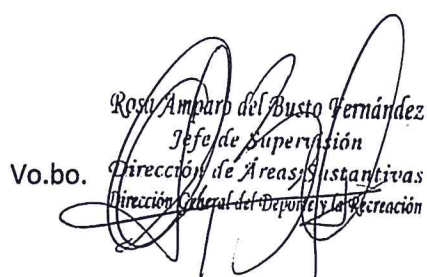 Rosa Amparo del Busto Fernández
Jefe de Supervisión
Vo.bo. Dirección de Áreas Sustantivas
Dirección General del Deporte y la Recreación